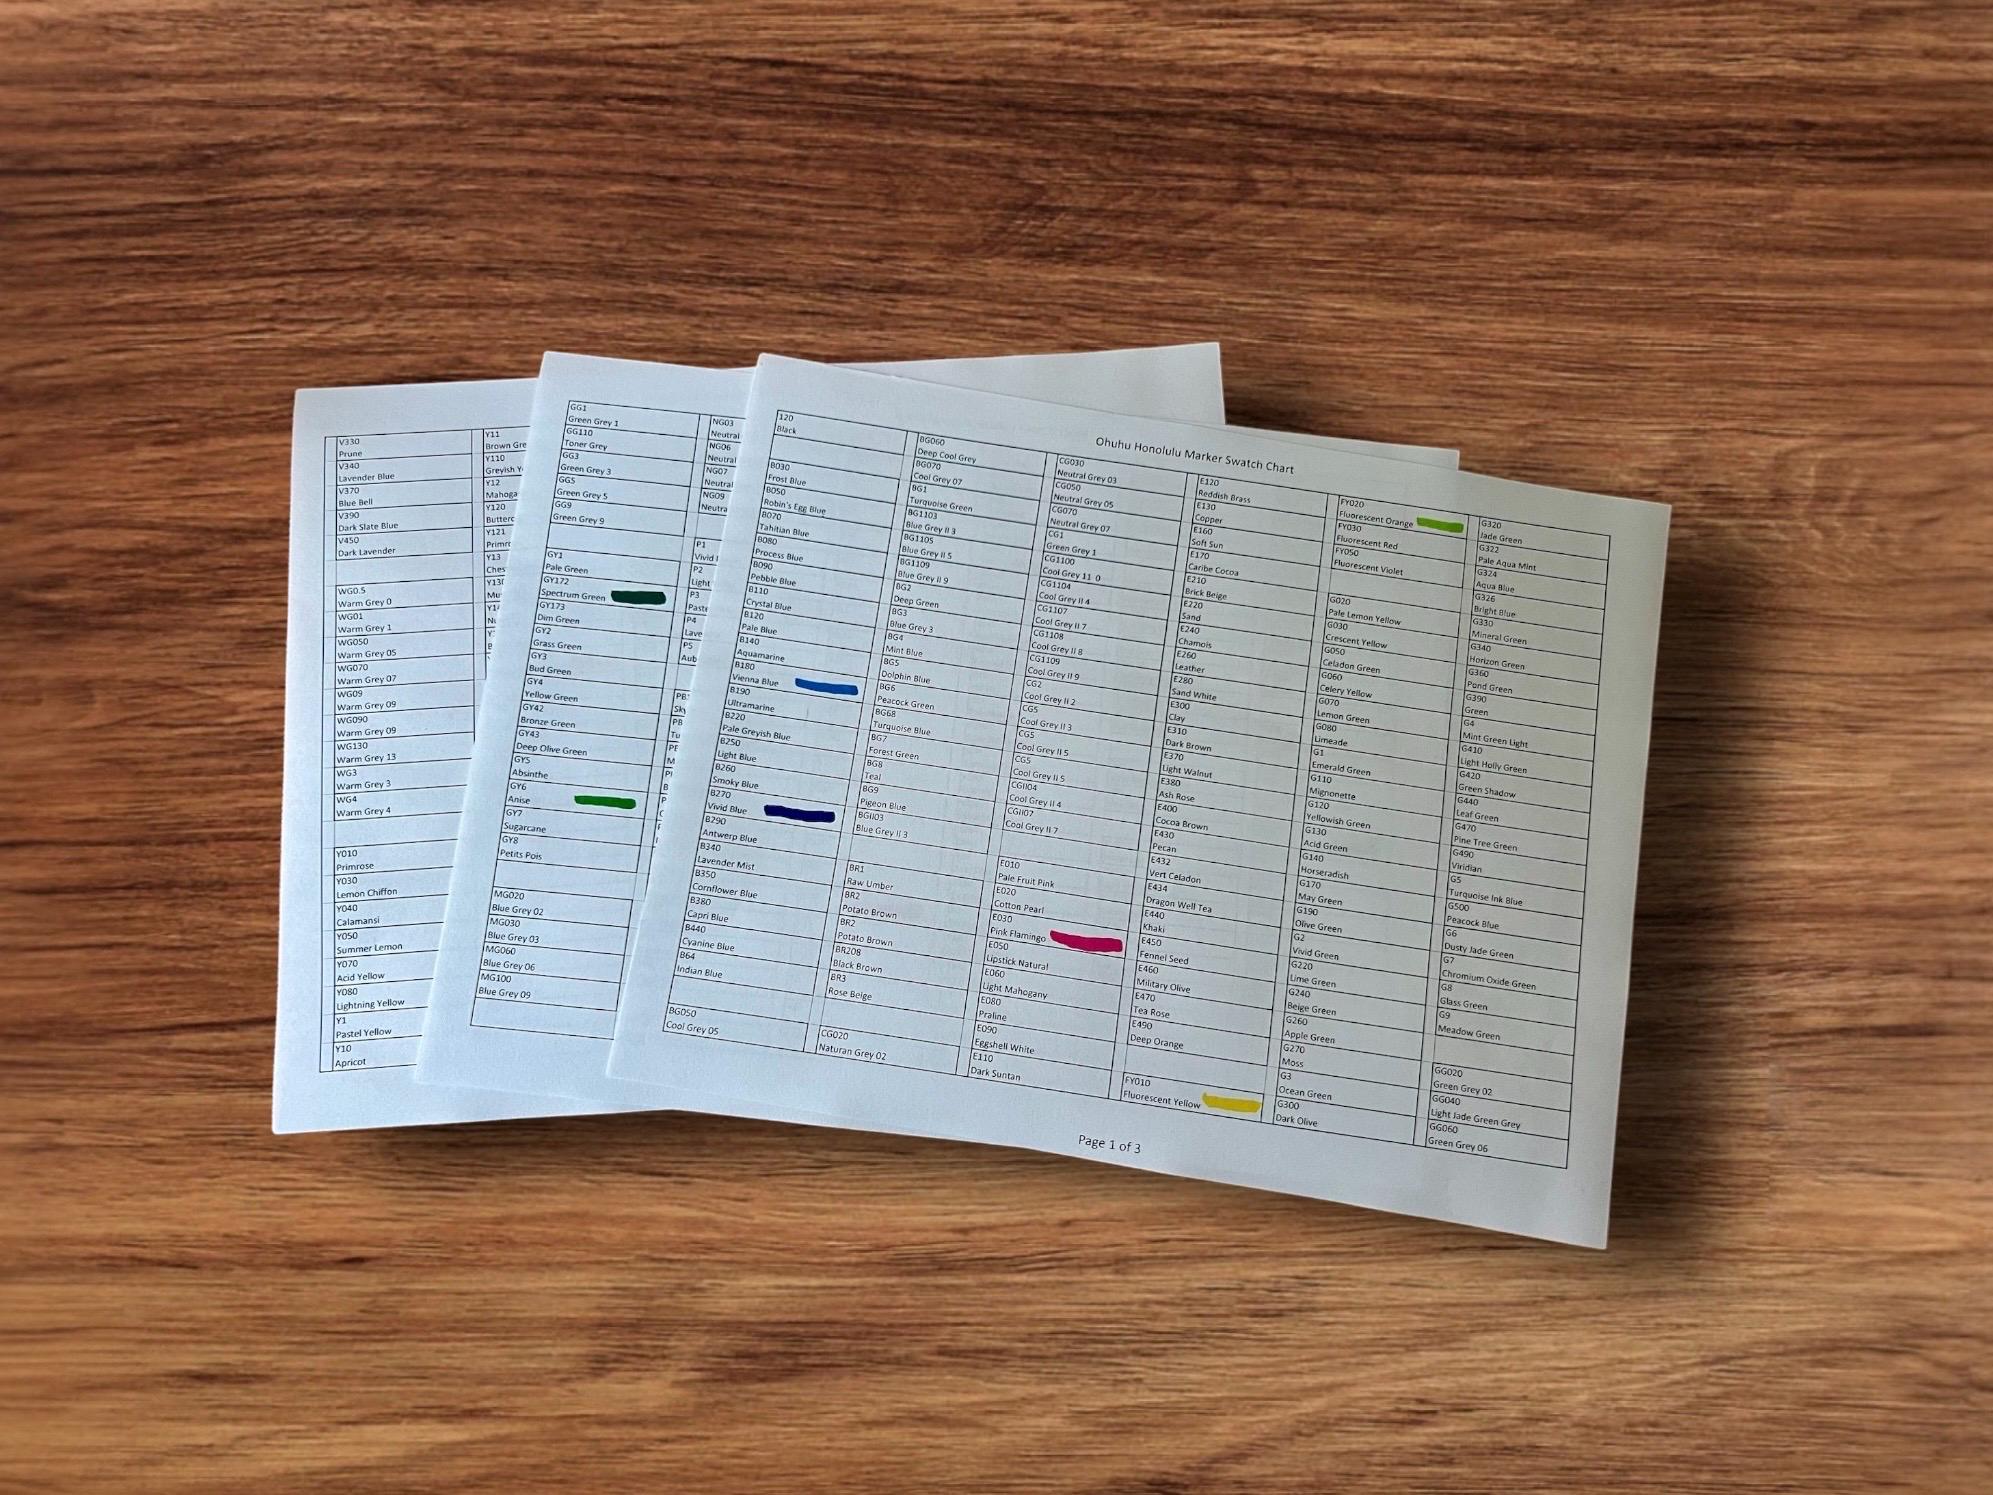 V330
Prune
V340
Lavender Blue
V370
Blue Bell
V390
Dark Slate Blue
V450
Dark Lavender
WG0.5
Warm Grey 0
WG01
Warm Grey 1
WG050
Warm Grey 05
WG070
Warm Grey 07
WG09
Warm Grey 09
WG090
Warm Grey 09
WG130
Warm Grey 13
WG3
Warm Grey 3
WG4
Warm Grey 4
Y010
Primrose
Y030
Lemon Chiffon
Y040
Calamansi
Y050
Summer Lemon
Y070
Acid Yellow
Y080
Lightning Yellow
Y1
Pastel Yellow
Y10
Apricot
Y11
Brown Gre
Y110
Greyish Y
Y12
Mahoga
Y120
Butterc
Y121
Primr
Y13
Ches
Y130
Mu
GG1
Green Grey 1
GG110
Toner Grey
GG3
Green Grey 3
GG5
Green Grey 5
GG9
Green Grey 9
GY1
Pale Green
GY172
Spectrum Green
GY173
Dim Green
GY2
Grass Green
GY3
Bud Green
GY4
Yellow Green
GY42
Bronze Green
GY43
Deep Olive Green
GY5
Absinthe
GY6
Anise
GY7
Sugarcane
GY8
Petits Pois
MG020
Blue Grey 02
MG030
Blue Grey 03
MG060
Blue Grey 06
MG100
Blue Grey 09
NG03
Neutral
NG06
Neutral
NG07
Neutral
NG09
Neutra
P1
Vivid
P2
Light
P3
Paste
P4
Lave
P5
Aub
Ohuhu Honolulu Marker Swatch Chart
120
Black
B030
Frost Blue
B050
Robin's Egg Blue
B070
Tahitian Blue
B080
Process Blue
B090
Pebble Blue
B110
Crystal Blue
B120
Pale Blue
B140
Aquamarine
B180
Vienna Blue
B190
Ultramarine
B220
Pale Greyish Blue
B250
Light Blue
B260
Smoky Blue
B270
Vivid Blue
B290
Antwerp Blue
B340
Lavender Mist
B350
Cornflower Blue
B380
Capri Blue
B440
Cyanine Blue
B64
Indian Blue
BG050
Cool Grey 05
BG060
Deep Cool Grey
BG070
Cool Grey 07
BG1
Turquoise Green
BG1103
Blue Grey II 3
BG1105
Blue Grey II 5
BG1109
Blue Grey II 9
BG2
Deep Green
BG3
Blue Grey 3
BG4
Mint Blue
BG5
Dolphin Blue
BG6
Peacock Green
BG68
Turquoise Blue
BG7
Forest Green
BG8
Teal
BG9
Pigeon Blue
BGII03
Blue Grey II 3
BR1
Raw Umber
BR2
Potato Brown
BR2
Potato Brown
BR208
Black Brown
BR3
Rose Beige
CG020
Naturan Grey 02
CG030
Neutral Grey 03
CG050
Neutral Grey 05
CG070
Neutral Grey 07
CG1
Green Grey 1
CG1100
Cool Grey 11 0
CG1104
Cool Grey II 4
CG1107
Cool Grey II 7
CG1108
Cool Grey II 8
CG1109
Cool Grey II 9
CG2
Cool Grey II 2
CG5
Cool Grey II 3
CG5
Cool Grey II 5
CG5
Cool Grey II 5
CGII04
Cool Grey II 4
CGII07
Cool Grey II 7
E010
Pale Fruit Pink
E020
Cotton Pearl
E030
Pink Flamingo
E050
Lipstick Natural
E060
Light Mahogany
E080
Praline
E090
Eggshell White
E110
Dark Suntan
E120
Reddish Brass
E130
Copper
E160
Soft Sun
E170
Caribe Cocoa
E210
Brick Beige
E220
Sand
E240
Chamois
E260
Leather
E280
Sand White
E300
Clay
E310
Dark Brown
E370
Light Walnut
E380
Ash Rose
E400
Cocoa Brown
E430
Pecan
E432
Vert Celadon
E434
Dragon Well Tea
E440
Khaki
E450
Fennel Seed
E460
Military Olive
E470
Tea Rose
E490
Deep Orange
FY010
Fluorescent Yellow
FY020
Fluorescent Orange
FY030
Fluorescent Red
FY050
Fluorescent Violet
G020
Pale Lemon Yellow
G030
Crescent Yellow
G050
Celadon Green
G060
Celery Yellow
G070
Lemon Green
G080
Limeade
G1
Emerald Green
G110
Mignonette
G120
Yellowish Green
G130
Acid Green
G140
Horseradish
G170
May Green
G190
Olive Green
G2
Vivid Green
G220
Lime Green
G240
Beige Green
G260
Apple Green
G270
Moss
G3
Ocean Green
G300
Dark Olive
G320
Jade Green
G322
Pale Aqua Mint
G324
Aqua Blue
G326
Bright Blue
G330
Mineral Green
G340
Horizon Green
G360
Pond Green
G390
Green
G4
Mint Green Light
G410
Light Holly Green
G420
Green Shadow
G440
Leaf Green
G470
Pine Tree Green
G490
Viridian
G5
Turquoise Ink Blue
G500
Peacock Blue
G6
Dusty Jade Green
G7
Chromium Oxide Green
G8
Glass Green
G9
Meadow Green
GG020
Green Grey 02
GG040
Light Jade Green Grey
GG060
Green Grey 06
Page 1 of 3